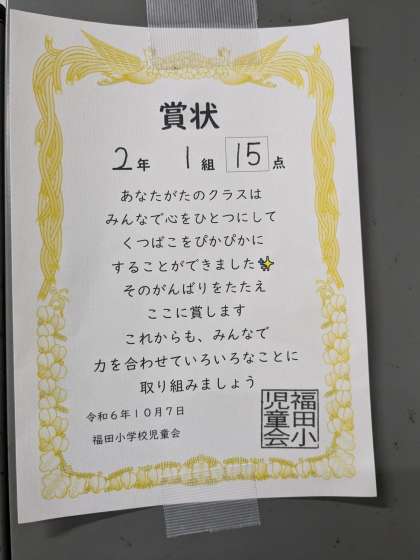 賞状
2年 1組 15点
あなたがたのクラスは
みんなで心をひとつにして
くつばこをぴかぴかに
することができました✨
そのがんばりをたたえ
ここに賞します
これからも、みんなで
力を合わせていろいろなことに
取り組みましょう
令和6年10月7日
福田小学校児童会
福田小
児童会